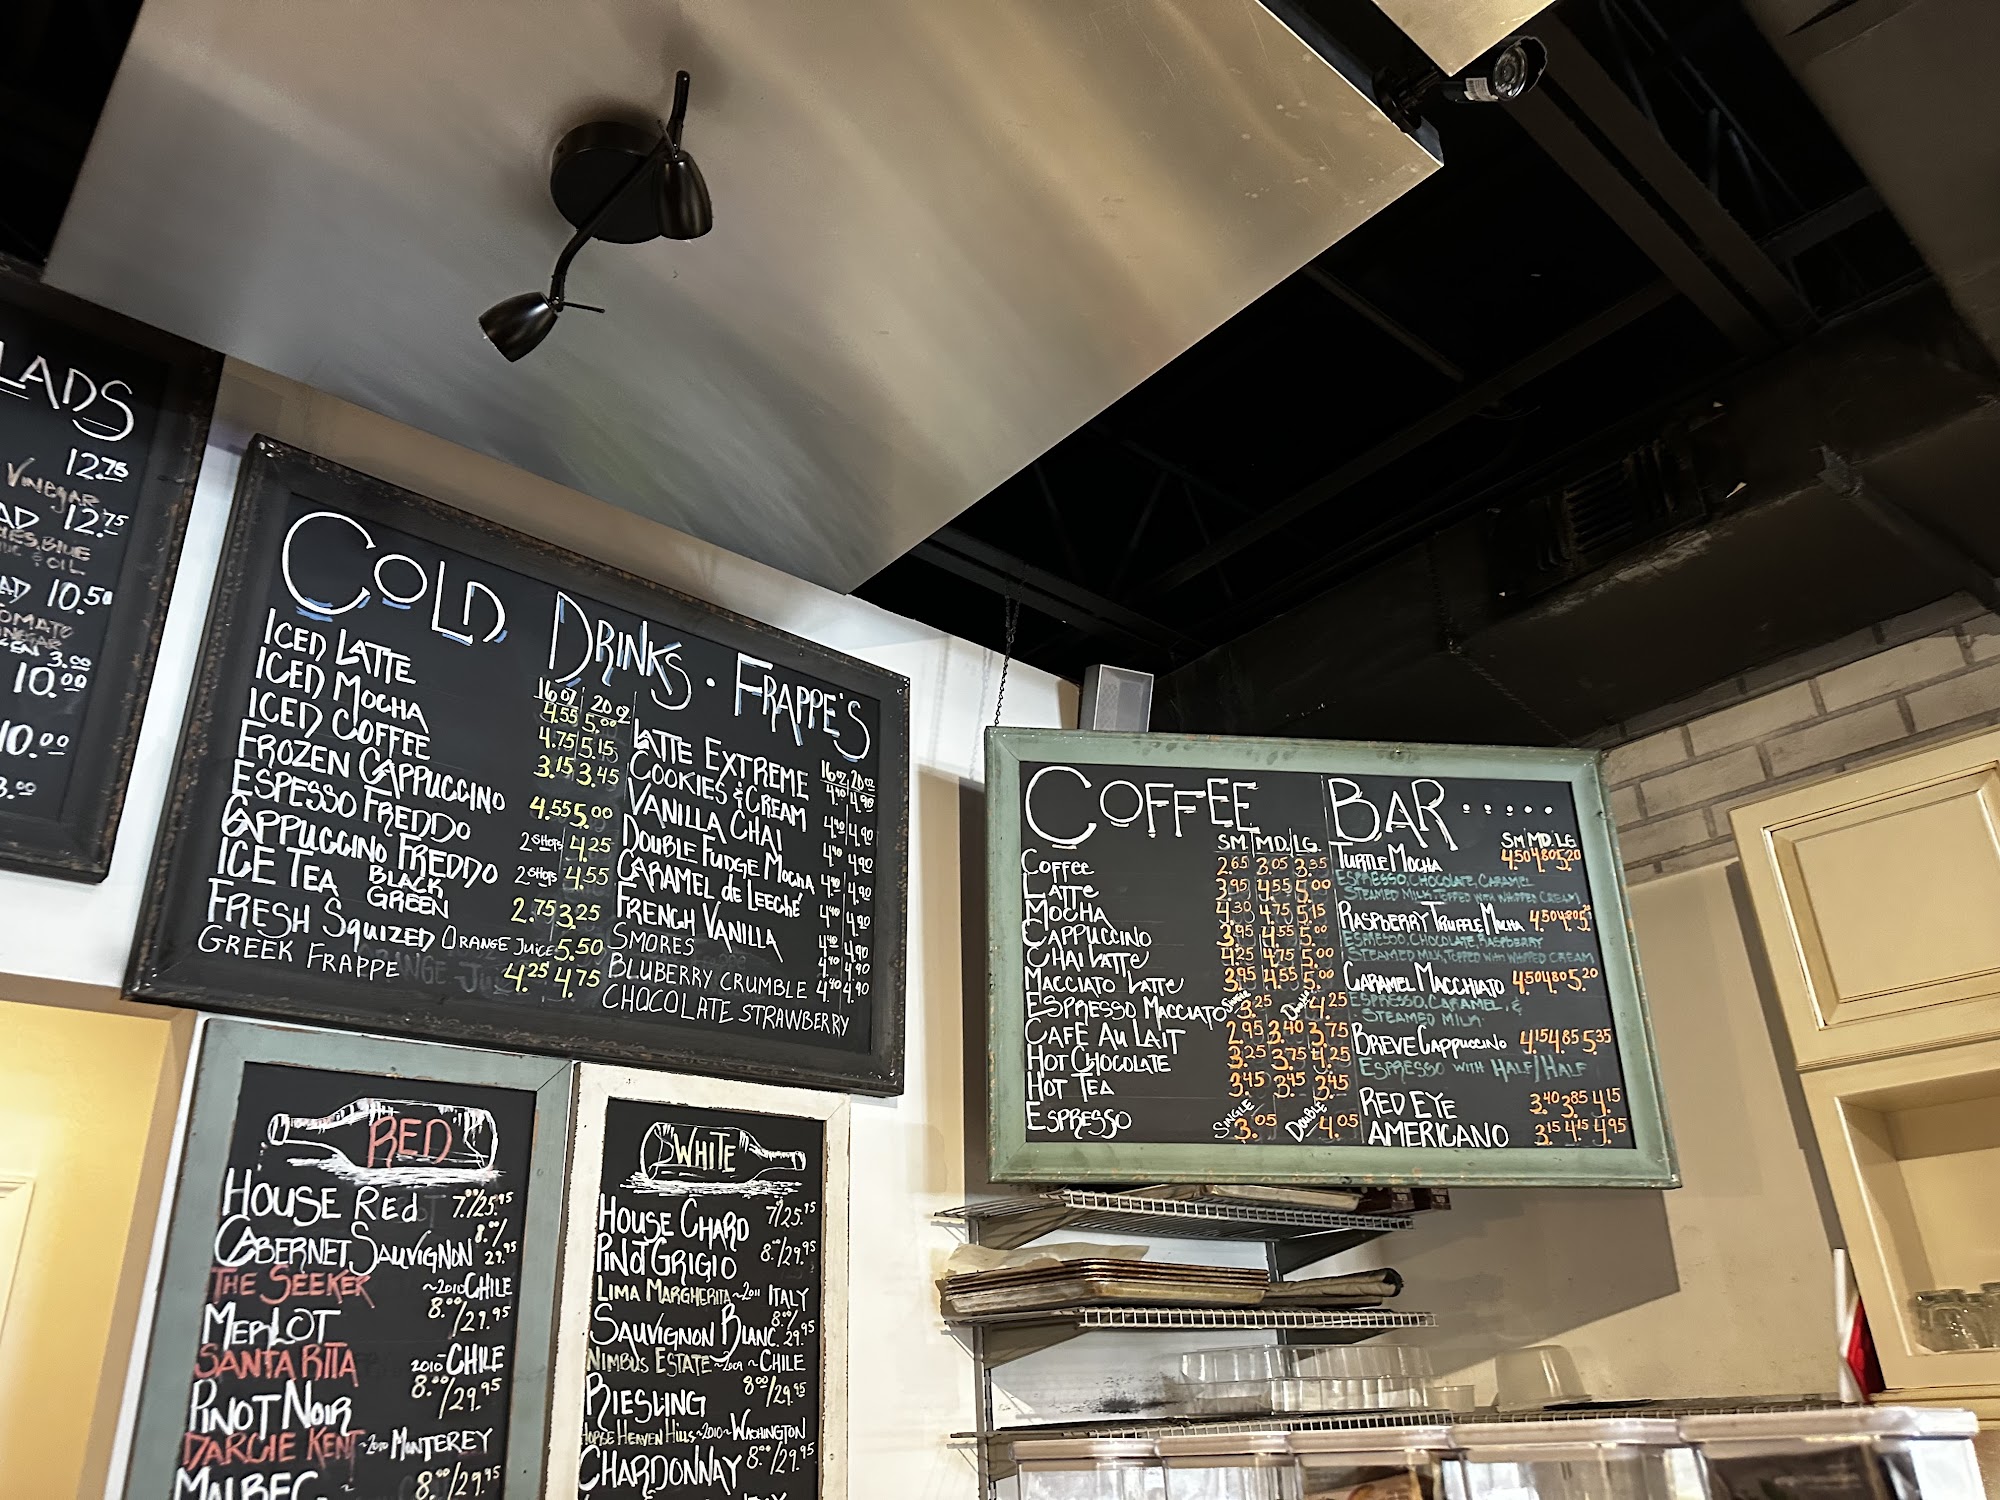 LADS
12.75
VINEGAR
AD 12.75
BLUE
& OIL
AD 10.50
OMATO
VINEGAR
3.00
10.00
10.00
3.00
COLD DRINKS · FRAPPE'S
16 OZ 20 OZ
ICED LATTE 4.55 5.00
ICED MOCHA 4.75 5.15
ICED COFFEE 3.15 3.45
FROZEN CAPPUCCINO 4.55 5.00
ESPESSO FREDDO 2 SHOTS 4.25
CAPPUCCINO FREDDO 2 SHOTS 4.55
ICE TEA BLACK GREEN 2.75 3.25
FRESH SQUIZED ORANGE JUICE 5.50
GREEK FRAPPE 4.25 4.75
16 OZ 20 OZ
LATTE EXTREME 4.40 4.90
COOKIES & CREAM 4.40 4.90
VANILLA CHAI 4.40 4.90
DOUBLE FUDGE MOCHA 4.40 4.90
CARAMEL de LEECHE 4.40 4.90
FRENCH VANILLA 4.40 4.90
SMORES 4.90 4.90
BLUBERRY CRUMBLE 4.90 4.90
CHOCOLATE STRAWBERRY
COFFEE BAR.....
SM. MD. LG.
COFFEE 2.65 3.05 3.35
LATTE 3.95 4.55 5.00
MOCHA 4.30 4.75 5.15
CAPPUCCINO 3.95 4.55 5.00
CHAI LATTE 4.25 4.75 5.00
MACCIATO LATTE 3.95 4.55 5.00
ESPRESSO MACCIATO SINGLE 3.25 DOUBLE 4.25
CAFE AU LAIT 2.95 3.40 3.75
HOT CHOCOLATE 3.25 3.75 4.25
HOT TEA 3.45 3.45 3.45
ESPRESSO SINGLE 3.05 DOUBLE 4.05
SM MD. LG
TURTLE MOCHA 4.50 4.80 5.20
ESPRESSO, CHOCOLATE, CARAMEL
STEAMED MILK, TOPPED WITH WHIPPED CREAM
RASPBERRY TRUFFLE MOCHA 4.50 4.80 5.25
ESPRESSO, CHOCOLATE, RASPBERRY
STEAMED MILK, TOPPED WITH WHIPPED CREAM
CARAMEL MACCHIATO 4.50 4.80 5.20
ESPRESSO, CARAMEL, &
STEAMED MILK
BREVE CAPPUCCINO 4.15 4.85 5.35
ESPRESSO WITH HALF/HALF
RED EYE 3.40 3.85 4.15
AMERICANO 3.15 4.15 4.95
RED
HOUSE RED 7.00/25.95
CABERNET SAUVIGNON 8.00/29.95
THE SEEKER ~2010 CHILE
MERLOT 8.00/29.95
SANTA RITA 2010~CHILE
PINOT NOIR 8.00/29.95
DARCIE KENT ~2010 MONTEREY
MALBEC ~ 8.00/29.95
WHITE
HOUSE CHARD 7/25.95
PINOT GRIGIO 8.00/29.95
LIMA MARGHERITA~2011 ITALY
SAUVIGNON BLANC 8.00/29.95
NIMBUS ESTATE~2009~CHILE
RIESLING 8.00/29.95
HORSE HEAVEN HILLS~2010~WASHINGTON
CHARDONNAY 8.00/29.95